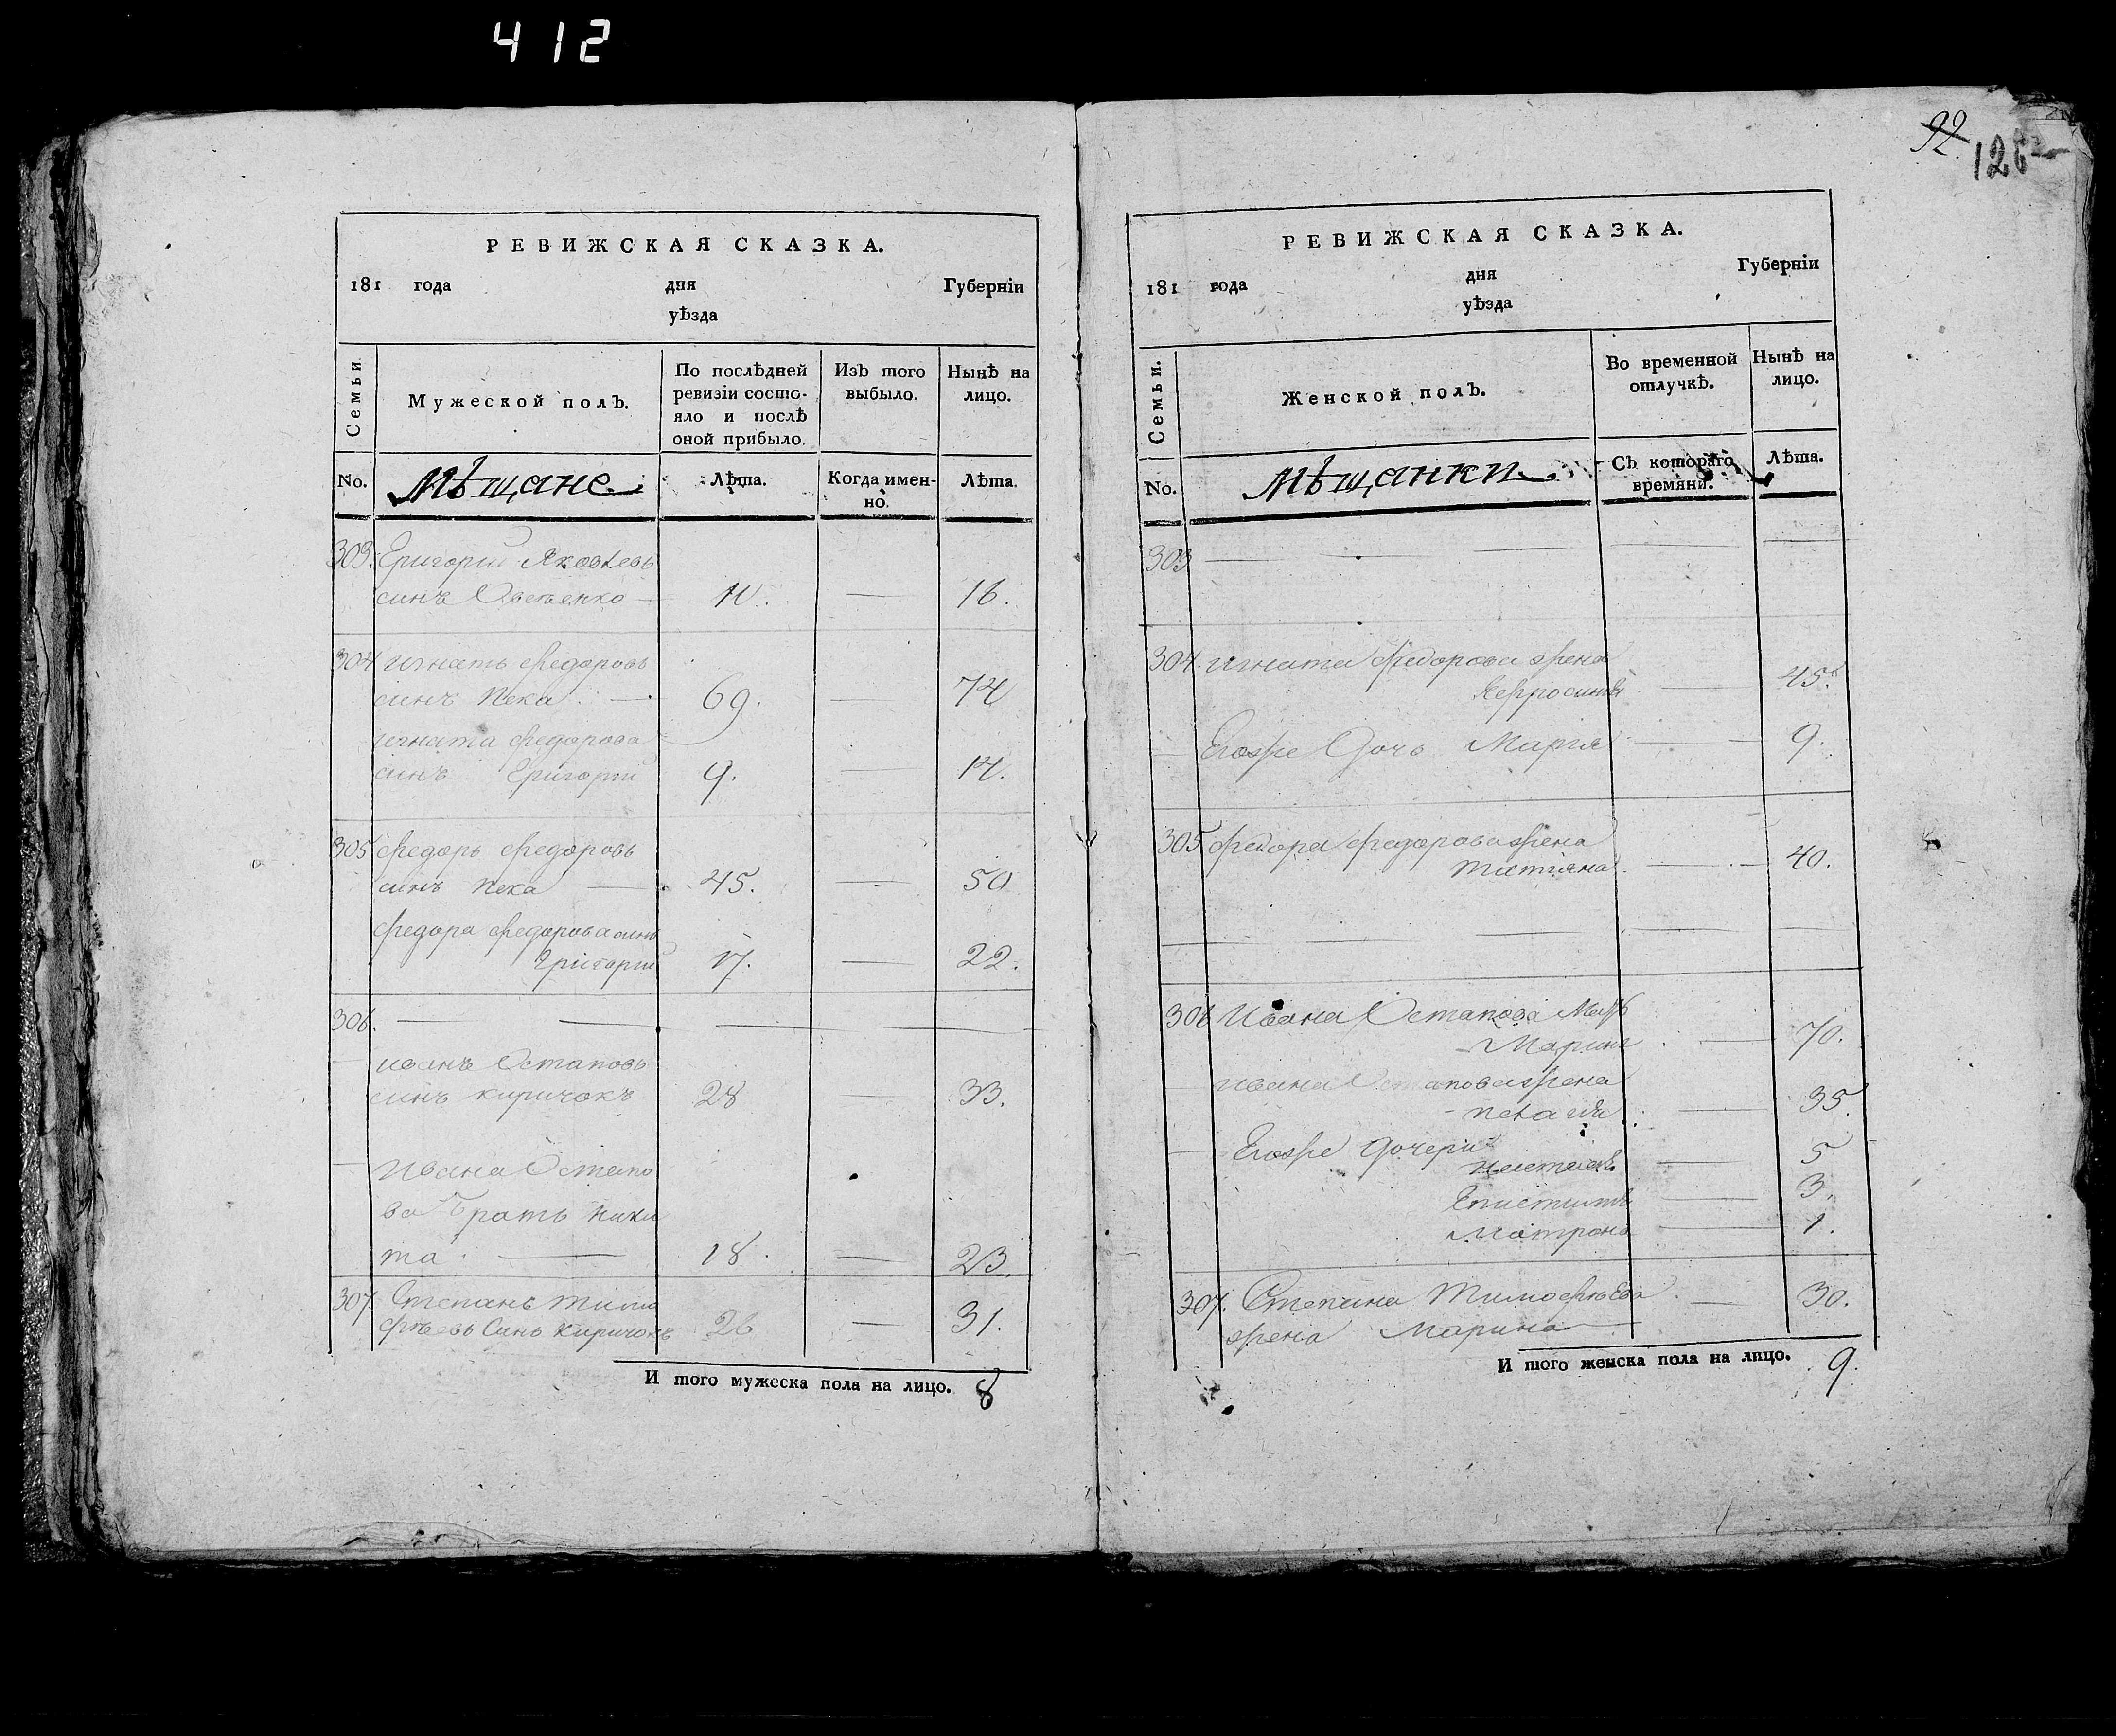 412
РЕВИЖСКАЯ СКАЗКА.
181 года дня Губерніи
уѣзда
Семьи
Мужеской полъ.
По послѣдней ревизіи состо-
яло и послѣ оной прибыло.
Изъ того выбыло.
Нынѣ на лицо.
No.
мѣщане
Лѣта.
Когда имен-
но.
Лѣта.
303. Григорий Яковлевъ
синъ 10. — 16.
304 игнатъ федоровъ
синъ пека. — 69. — 74
игната федорова
синъ Григорий 9. — 14.
305 федоръ федоровъ
синъ пека — 45. — 50
федора федорова синъ
Григорий 17. — 22.
306. — — — —
иванъ Остаповъ
синъ киричокъ 28 — 33.
Ивана Остапо
ва братъ ники
та. — 18. — 23.
307. Степанъ тимо
фѣевъ Синъ киричокъ 26 — 31.
И того мужеска пола на лицо. 8
92
126
РЕВИЖСКАЯ СКАЗКА.
181 года дня Губерніи
уѣзда
Семьи.
Женской полъ.
Во временной
отлучкѣ.
Нынѣ на
лицо.
No.
мѣщанки
Съ котораго
времяни.
Лѣта.
303 — — — — —
304 игната федорова жена
— 45.
Егоже дочь Марія — 9.
305 федора федорова жена
татіяна — 40.
— — — — —
306 Ивана Остапова Мать
Марина — 70.
ивана Остапова жена
пелагія — 35.
Егоже дочери
— 5
— 3.
Матрона — 1.
307. Степана Тимофѣева — 30.
жена Марина —
И того женска пола на лицо. 9.